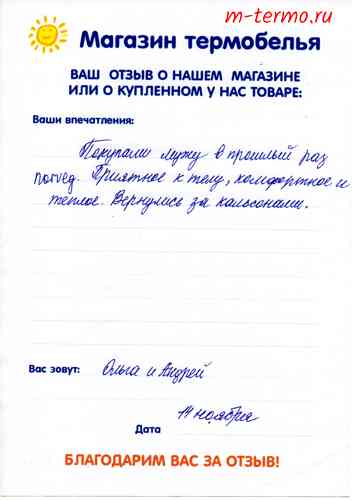 m-termo.ru
Магазин термобелья
ВАШ ОТЗЫВ О НАШЕМ МАГАЗИНЕ
ИЛИ О КУПЛЕННОМ У НАС ТОВАРЕ:
Ваши впечатления:
Покупали мужу в прошлый раз
norveg. Приятное к телу, комфортное и
теплое. Вернулись за кальсонами.
Вас зовут: Ольга и Андрей
Дата 14 ноября
БЛАГОДАРИМ ВАС ЗА ОТЗЫВ!